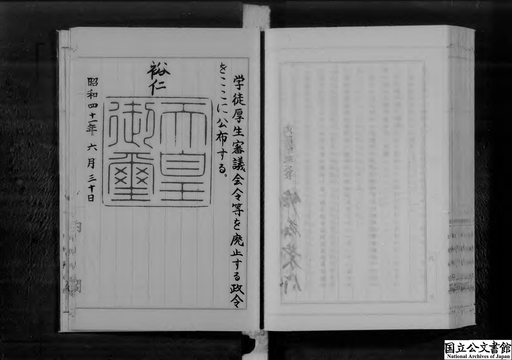 学徒厚生審議会令等を廃止する政令
をここに公布する。
裕仁
天皇
御璽
昭和四十一年六月三十日
国立公文書館
National Archives of Japan